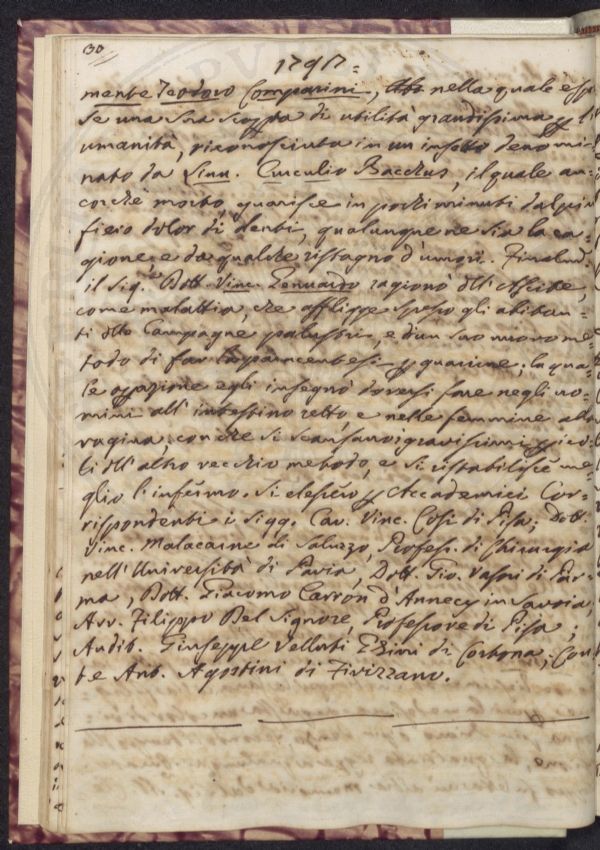 30
1797=
mente Teodoro Comparini, nella quale espo
se una sua scopta di utilità grandissima p l'
umanità, riconosciuta in un insetto deno mi=
nato da Linn. Curculio Bacchus, il quale an=
corchè morto, guarisce in pochi minuti dal piu
fiero dolor di denti, qualunque ne sia la ca=
gione, e da qualche ristagno d'umori. Finalmte
il Sig. Dott. Vinc. Gennardo ragionò dll'Ascite,
come malattia, che affligge spesso gli abitan=
ti dlle Campagne palustri, e d'un suo nuovo me=
todo di far la paracentesi p guarirne; la qua=
le opazione egli insegnò doversi fare negli uo=
mini all'intestino retto, e nelle femmine alla
vagina, con che si scansano i gravissimi pico=
li dll'altro vecchio metodo, e si ristabilisce me=
glio l'infermo. Si elessero p Accademici Cor=
rispondenti i Sigg. Cav. Vinc. Cosi di Pisa; Dott.
Vinc. Malacarne di Saluzzo, Profess. di Chirurgia
nell'Università di Pavia, Dott. Gio. di Par=
ma, Dott. Giacomo Carron d'Annecy in Savoia
Avv. Filippo Del Signore, Professore di Pisa;
Audit. Giuseppe Velluti Zini di Cortona; Con=
te Ant. Agostini di Fivizzano.